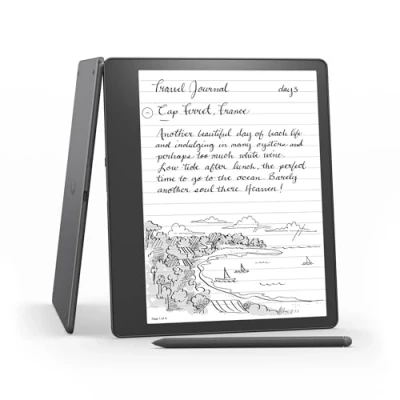 Travel Journal days
Cap Ferret, France
Another beautiful day of beach life
and indulging in many oysters and
perhaps too much white wine.
Low tide after lunch, the perfect
time to go to the ocean. Barely
another soul there. Heaven!
Page 1 of 4